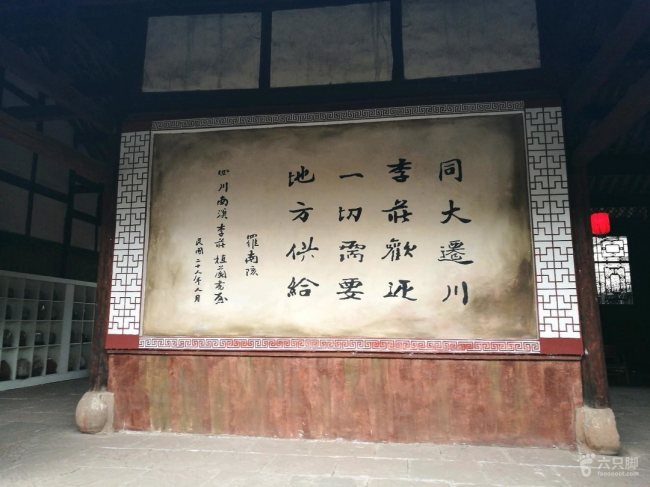 同大遷川
李莊歡迎
一切需要
地方供給
羅南陔
四川南溪李莊植蘭書屋
民國二十八年九月
六只脚
foooooot.com